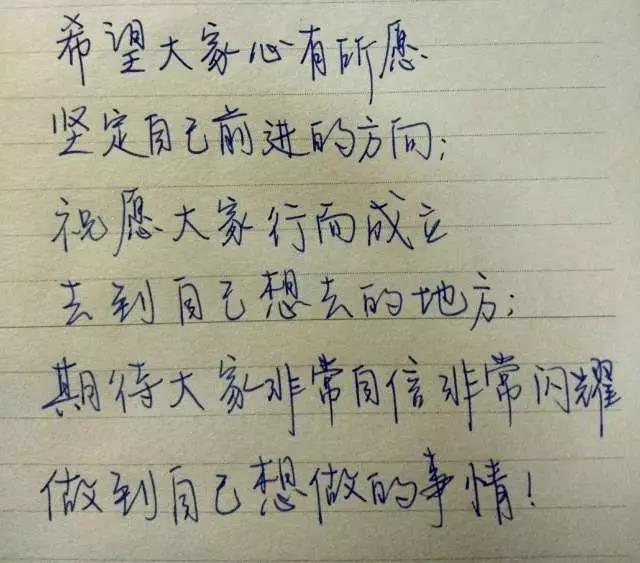 希望大家心有所愿
坚定自己前进的方向;
祝愿大家行而成立
去到自己想去的地方;
期待大家非常自信非常闪耀
做到自己想做的事情!